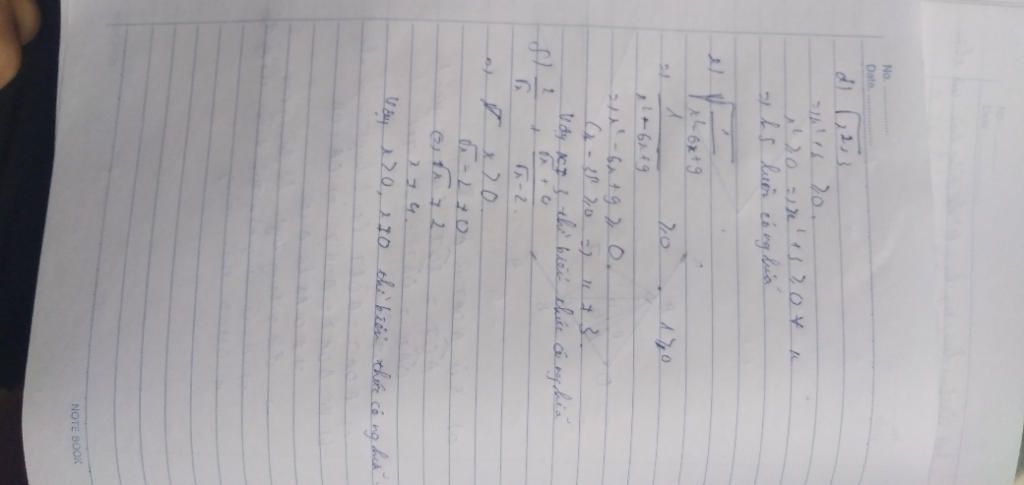 No.
Date
d) √x²+3
=> x²+3 ≥0.
x² ≥0 => x²+3 ≥0 ∀ x
=> b3 luôn có nghĩa
e) √1/x²-6x+9
=> 1/x²-6x+9 ≥0 1≥0
=> x²-6x+9 ≥ 0
(x-3)² ≥0 => x ≠ 3.
Vậy x≠3 thì biểu thức có nghĩa
f) 2/√x + √x+4/√x-2.
=> x ≥0.
√x-2 ≠0
<=> √x ≠ 2
x ≠ 4.
Vậy x≥0, x≠0 thì biểu thức có nghĩa.
NOTE BOOK